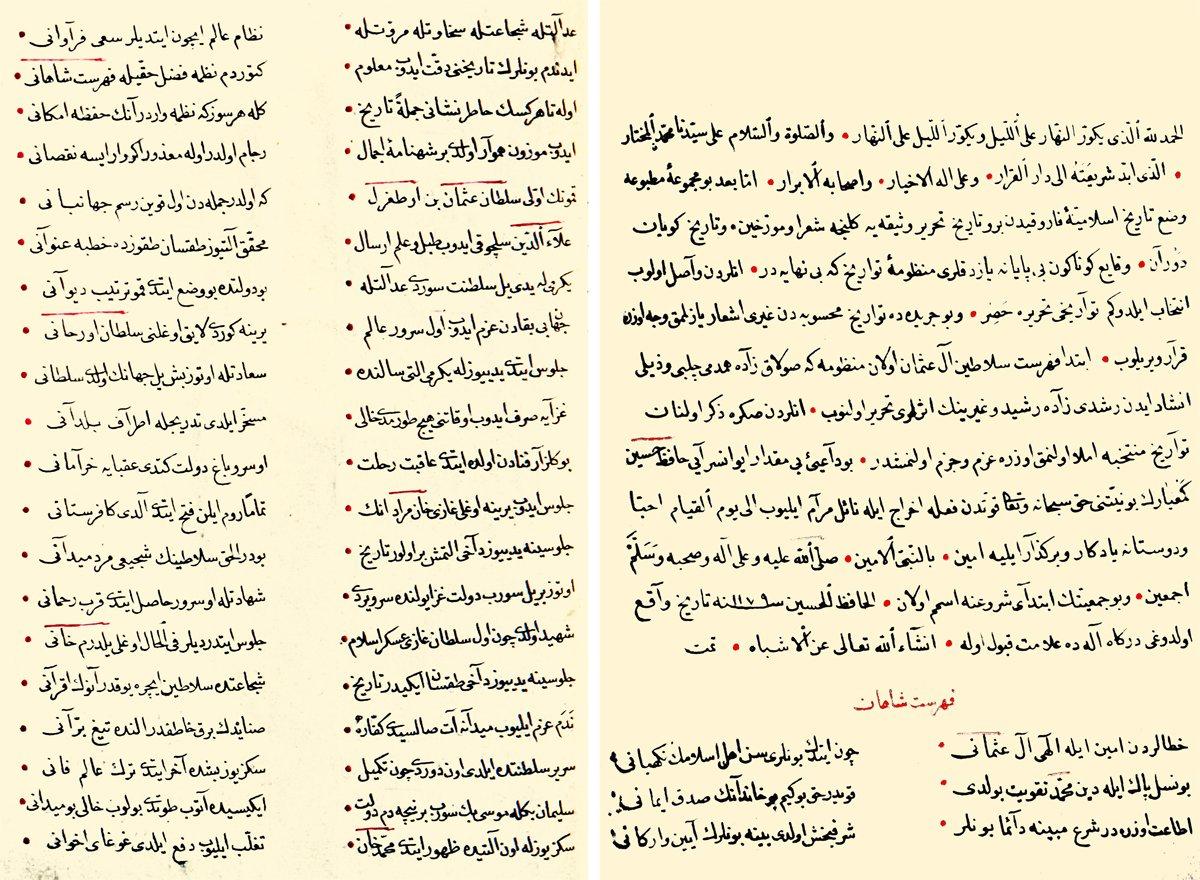 الحمد لله الذى يكور النهار على الليل ويكور الليل على النهار • والصلوة والسلام على سيدنا محمد المختار
• الذى ابتد شريعته الى دار القرار • وعلى اله الاخيار • واصحابه الابرار • اما بعد بو مجموعۀ مطبوعه
وضع تاريخ اسلاميۀ فاروقيدن برو تاريخ تحرير وثيقه يه كلنجه شعرا ومورخين • وتاريخ كويان
دوران • وقايع كوناكون بى پايانه يازدقلرى منظومۀ تواريخ كه بى نهايه در • انلردن واصل اولوب
انتخاب ايلدوكم تواريخى تحريره حصر • وبو جريده ده تواريخ محسوبه دن غيرى اشعار يازلمق وجه اوزره
قرار ويريلوب • ابتدا فهرست سلاطين آل عثمان اولان منظومه كه صولاق زاده همدمى چلبى وذيلى
انشاد ايدن رشدى زاده رشيد وغيرينك اثرلرى تحرير اولنوب • انلردن صكره ذكر اولنان
تواريخ منتخبه املا اولنمق اوزره عزم وجزم اولنمشدر • بو داعئ بى مقدار ايوانسرايى حافظ حسين
كمبارك بو نيتنى حق سبحانه وتعالى قوتدن فعله اخراج ايله نائل مرام ايليوب الى يوم القيام احبا
ودوستانه يادكار وبركذار ايليه امين • بالنبى الامين • صلى الله عليه وعلى اله وصحبه وسلم
اجمعين • وبو جمعيتك ابتداى شروعنه اسم اولان • الحافظ الحسين سنه ١١٧٩ نه تاريخ واقع
اولدوغى دركاه اله ده علامت قبول اوله • انشاء الله تعالى عن الاشباه • تمت
فهرست شاهان
خطالردن امين ايله الهى آل عثمانى • چون ايتدك بونلرى سن اهل اسلامك نكهبانى
بو نسل پاك ايله دين محمد تقويت بولدى • قويدر حق بوكيم بو خاندانك صدق ايمانى
اطاعت اوزره در شرع مبينه دائما بونلر • شرفبخش اولدى بينه بونلرك آيين واركانى
عدالتله شجاعتله سخاوتله مروتله • نظام عالم ايچون ايتديلر سعى فراوانى
ايدندم بونلرك تاريخنى دقت ايدوب معلوم • كتوردم نظمه فضل حقيله فهرست شاهانى
اوله تا هر كسك خاطر نشانى جملۀ تاريخ • كله هر سوز كه نظمه واردر آنك حفظه امكانى
ايدوب موزون هموار اولدى بر شهنامۀ اجمال • رجام اولدر اوله معذور اكر وار ايسه نقصانى
قمونك اولى سلطان عثمان بن ارطغرل • كه اولدر جمله دن اول قوين رسم جهانبانى
علاء الدين سلجوقى ايدوب طبل وعلم ارسال • محقق آلتيوز طقسان طقوزده خطبه عنوانى
يكرمى له يدى يل سلطنت سوردى عدالتله • بو دولتده بو وضع ايتدى قمو ترتيب ديوانى
جهان بى بقادن عزم ايدوب اول سرور عالم • يرينه كوردى لايق اوغلنى سلطان اورخانى
جلوس ايتدى يديوزله يكرمى التى سالنده • سعادتله اوتوز بش يل جهانك اولدى سلطانى
غزايه صرف ايدوب اوقاتنى هيچ طورمدى خالى • مسخر ايلدى تدريجله اطراف بلدانى
بو كلزار فنادن اوله ايتدى عاقبت رحلت • اوسرو باغ دولت كتدى عقبايه خرامانى
جلوس ايدوب يرينه اوغلى غازى خان مراد انك • تماما روم ايلن فتح ايتدى آلدى كافرستانى
جلوسينه يديوز دخى التمش بر اولور تاريخ • بودر الحق سلاطينك شجيعى مرد ميدانى
اوتوز بر يل سوروب دولت غزا يولنده سر ويردى • شهادتله اوسرور حاصل ايتدى قرب رحمانى
شهيد اولدى چون اول سلطان غازى عسكر اسلام • جلوس ايتدرديلر فى الحال اوغلى يلدرم خانى
جلوسينه يديوز دخى طقسان ايكيدر تاريخ • شجاعتده سلاطين ايچره يوقدر آنوك اقرانى
قدم عزم ايليوب ميدانه آت صالسيدى كفاره • صنايدك برق خاطفدر النده تيغ برانى
سرير سلطنتده ايلدى اون دوردى چون تكميل • سكز يوز بشده آخر ايتدى ترك عالم فانى
سليمان بكله موسى بك سوروب بر نيجه دم دولت • ايكيسيده آنوب طوتدى بولوب خالى بو ميدانى
سكز يوزله اون آلتيده ظهور ايتدى محمد خان • تغلب ايليوب دفع ايلدى غوغاى اخوانى